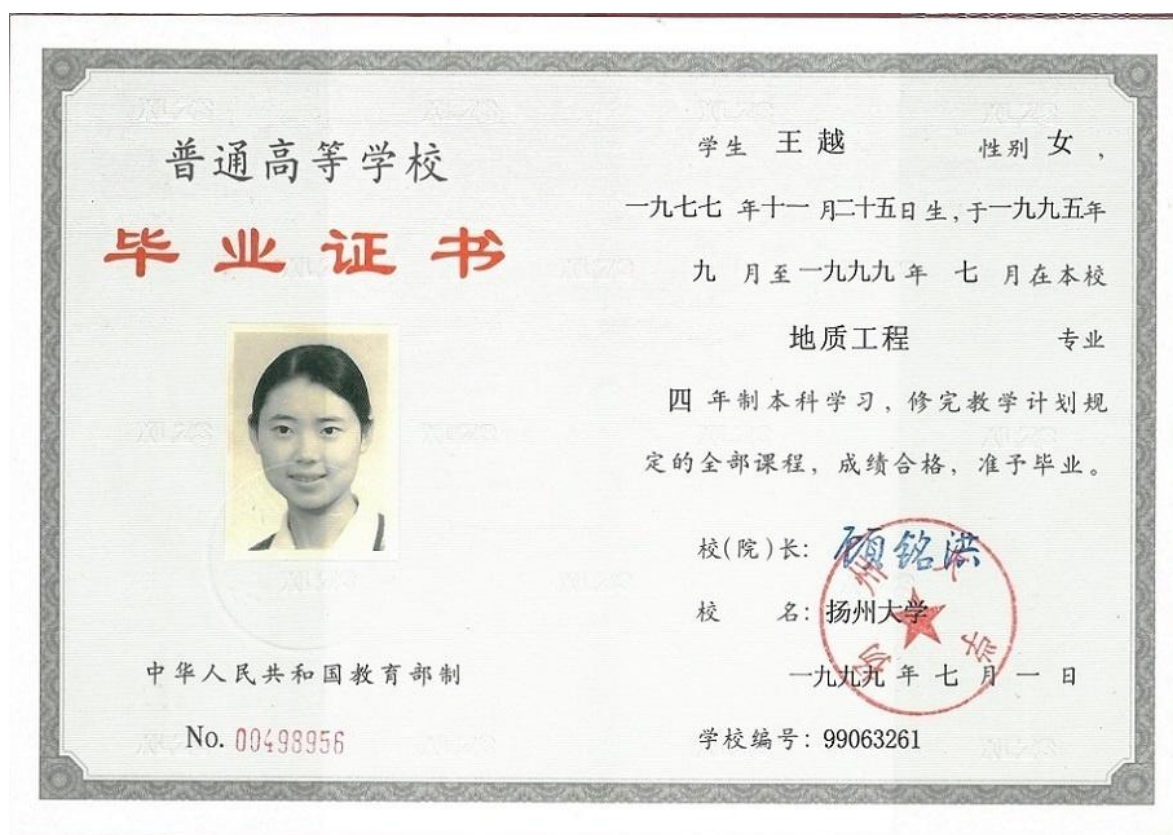 普通高等学校
毕业证书
中华人民共和国教育部制
No. 00498956
学生 王越 性别 女,
一九七七 年十一 月二十五日生,于一九九五年
九 月至一九九九年 七 月在本校
地质工程 专业
四 年制本科学习,修完教学计划规
定的全部课程,成绩合格,准予毕业。
校(院)长: 顾铭洪
校 名: 扬州大学
一九九九 年 七 月 一 日
学校编号: 99063261